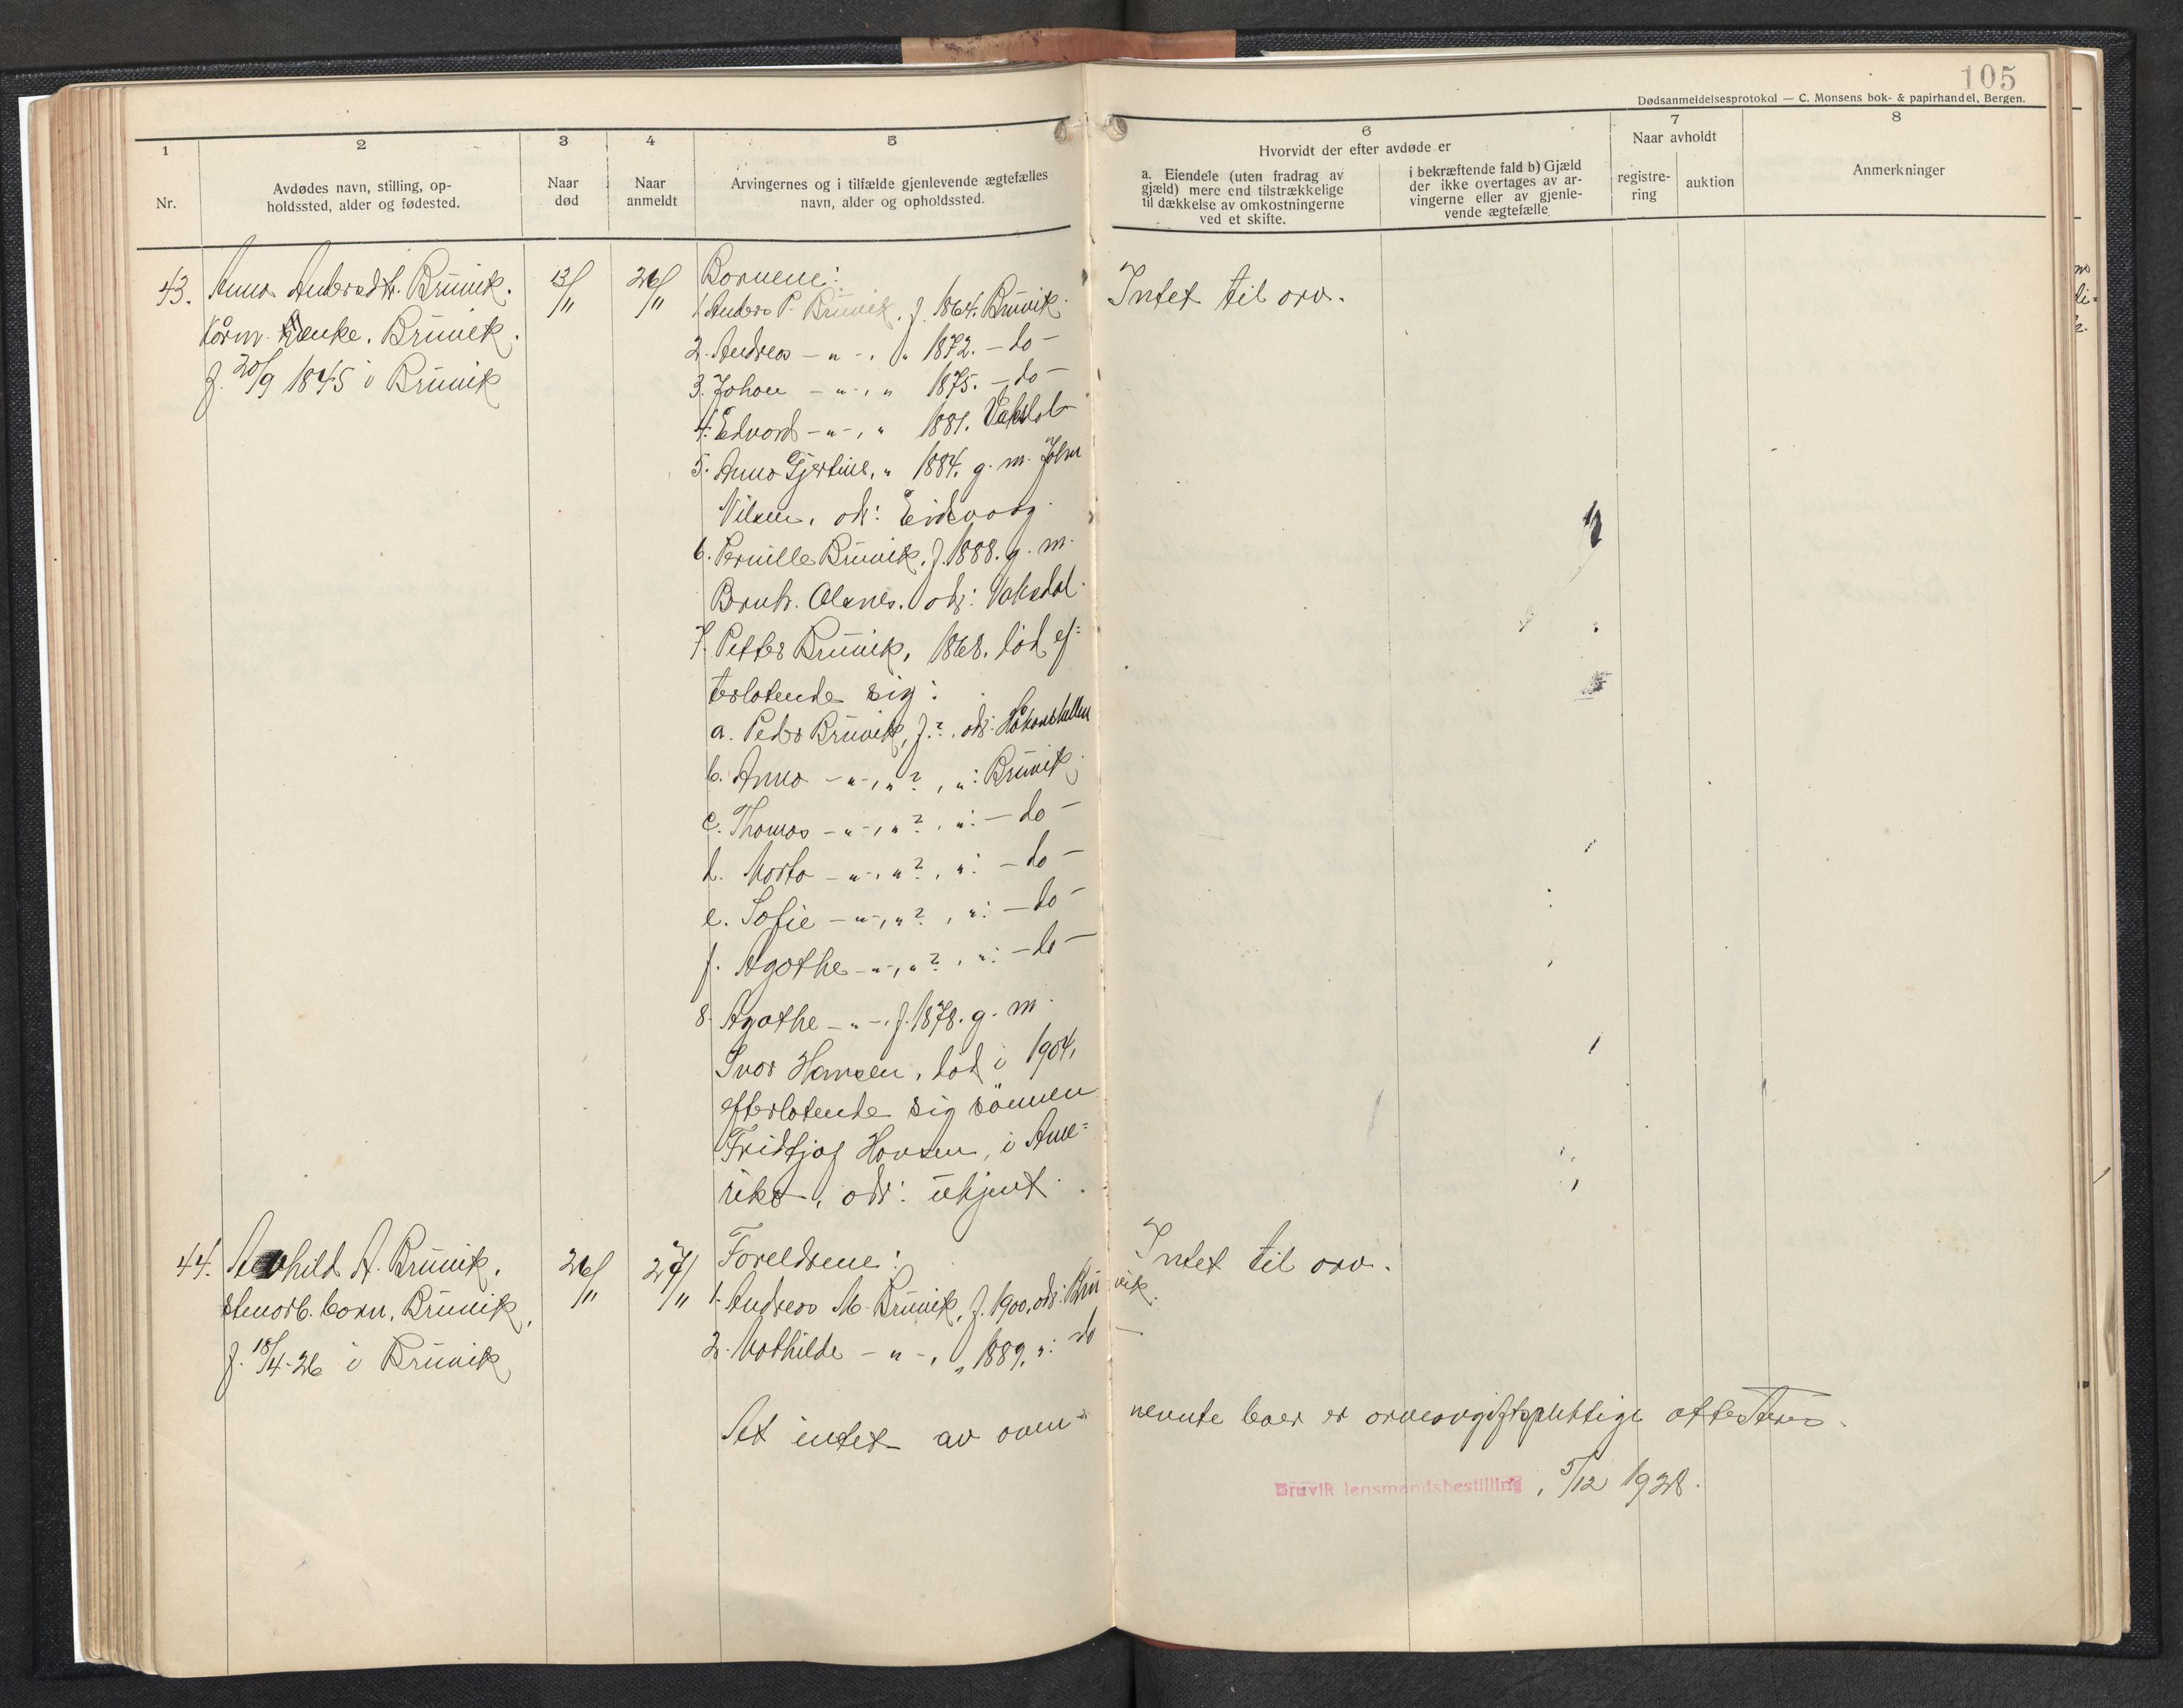 105
Dødsanmeldelsesprotokol — C. Monsens bok- & papirhandel, Bergen.
1
Nr.
2
Avdødes navn, stilling, op-
holdssted, alder og fødested.
3
Naar
død
4
Naar
anmeldt
5
Arvingernes og i tilfælde gjenlevende ægtefælles
navn, alder og opholdssted.
6
Hvorvidt der efter avdøde er
a. Eiendele (uten fradrag av
gjæld) mere end tilstrækkelige
til dækkelse av omkostningerne
ved et skifte.
i bekræftende fald b) Gjæld
der ikke overtages av ar-
vingerne eller av gjenle-
vende ægtefælle
7
Naar avholdt
registre-
ring
auktion
8
Anmerkninger
43.
Anna Andersdtr. Bruvik.
Kårm. Enke. Bruvik.
f. 20/9 1845 i Bruvik
13/11
26/11
Bornene:
1. Anders P. Bruvik. f. 1864. Bruvik.
2. Andreas -"-. " 1872. - do -
3. Johan -"-, " 1875. - do -
4. Edvard -"-, " 1881. Vaksdal
5. Anna Gjertine, " 1884. g. m. John
Nilsen. ods: Eidsvaag
6. Pernille Bruvik. f. 1888. g. m.
Bernh. Olsnes. ods: Vaksdal.
7. Petter Bruvik, 1868. død ef=
terlatende sig:
a. Peder Bruvik, f. ?. ods: Håkonshellen
b. Anna -"-, " ?, ": Bruvik.
c. Thomas -"-, " ?, ": - do -
d. Marta -"-, " ?, ": - do -
e. Sofie -"-, " ?, ": - do -
f. Agathe -"-, " ?, ": - do -
8. Agathe -"-. f. 1878. g. m.
Ivar Hansen, død i 1904,
efterlatende sig sönnen
Fridtjof Hansen, i Ame=
rika, ods: ukjent.
Intet til arv.
44.
A. Bruvik.
barn. Bruvik,
f. 18/4-26 i Bruvik
26/11
27/11
Foreldrene:
1. Andreas M. Bruvik, f. 1900. ods: Bruvik.
2. Mathilde -"-, " 1889. ": do -
Intet til arv.
At intet av oven= nevnte boer er arveavgiftspliktige attesteres.
Bruvik lensmandsbestilling, 5/12 1928.